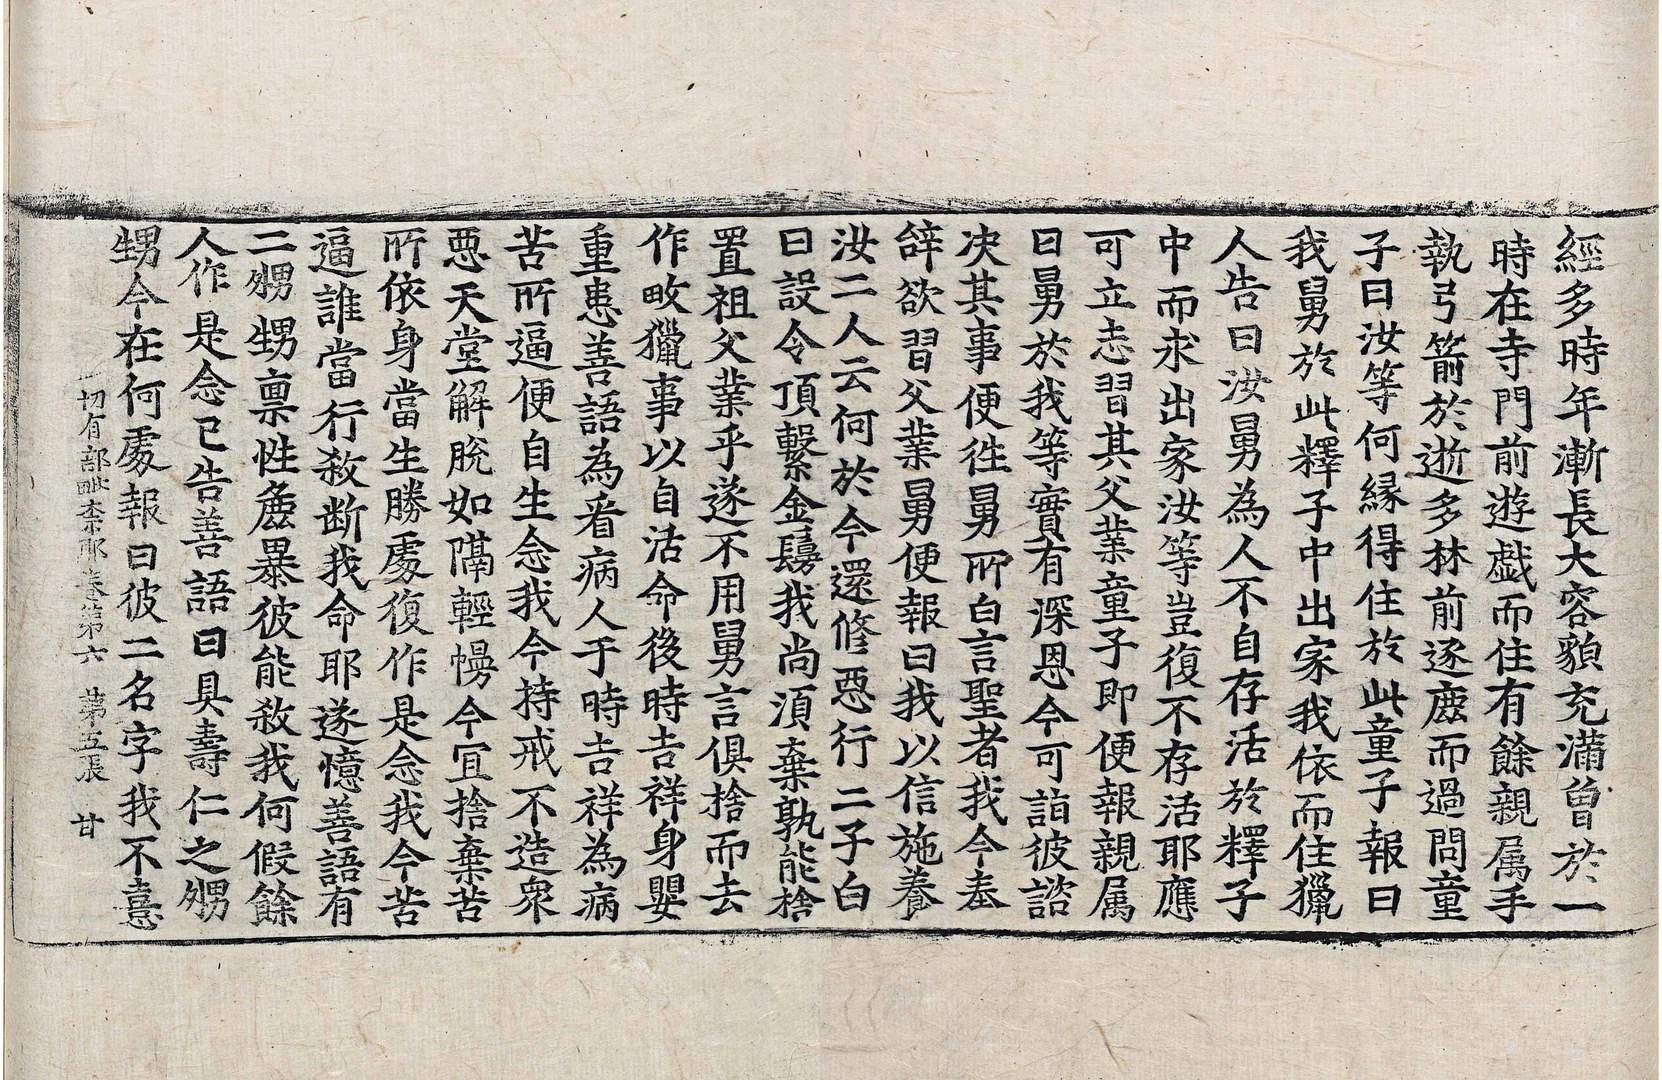 經多時年漸長大容貌充滿曾於一
時在寺門前遊戱而住有餘親属手
執弓箭於逝多林前逐麁而過問童
子曰汝等何縁得住於此童子報曰
我舅於此釋子中出家我依而住獵
人告曰汝舅為人不自存活於釋子
中而求出家汝等豈復不存活耶應
可立志習其父業童子即便報親属
曰舅於我等實有深恩今可詣彼諮
决其事便徃舅所白言聖者我今奉
辝欲習父業舅便報曰我以信施養
汝二人云何於今還修惡行二子白
曰設令頂繫金鬘我尚湏棄孰能捨
置祖父業乎遂不用舅言俱捨而去
作畋獵事以自活命後時吉祥身嬰
重患善語為看病人于時吉祥為病
苦所逼便自生念我今持戒不造衆
惡天堂解脫如隔輕幔今宜捨棄苦
所依身當生勝處復作是念我今苦
逼誰當行殺断我命耶遂憶善語有
二甥甥禀性麁暴彼能殺我何假餘
人作是念已告善語曰具壽仁之甥
甥今在何處報曰彼二名字我不憙
切有部毗柰耶卷第六　第十五張　甘